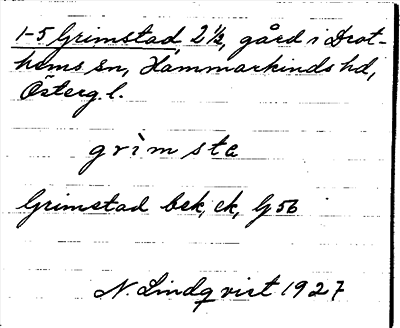 1-5 Grimstad 2 1/2, gård i Drot-
hems sn, Hammarkinds hd,
Österg. l.
grìmsta
Grimstad bek, ek, G 56
N. Lindqvist 1927